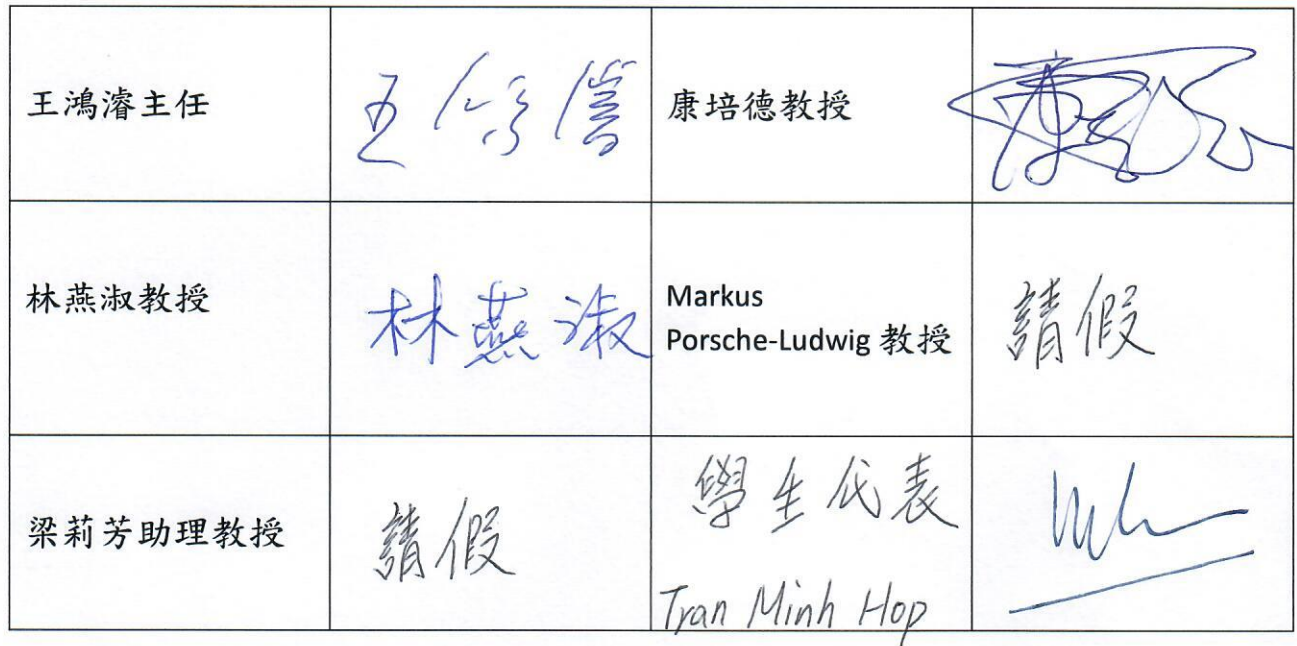 王鴻濬主任
王鴻濬
康培德教授
林燕淑教授
林燕淑
Markus
Porsche-Ludwig 教授
請假
梁莉芳助理教授
請假
學生代表
Tran Minh Hop